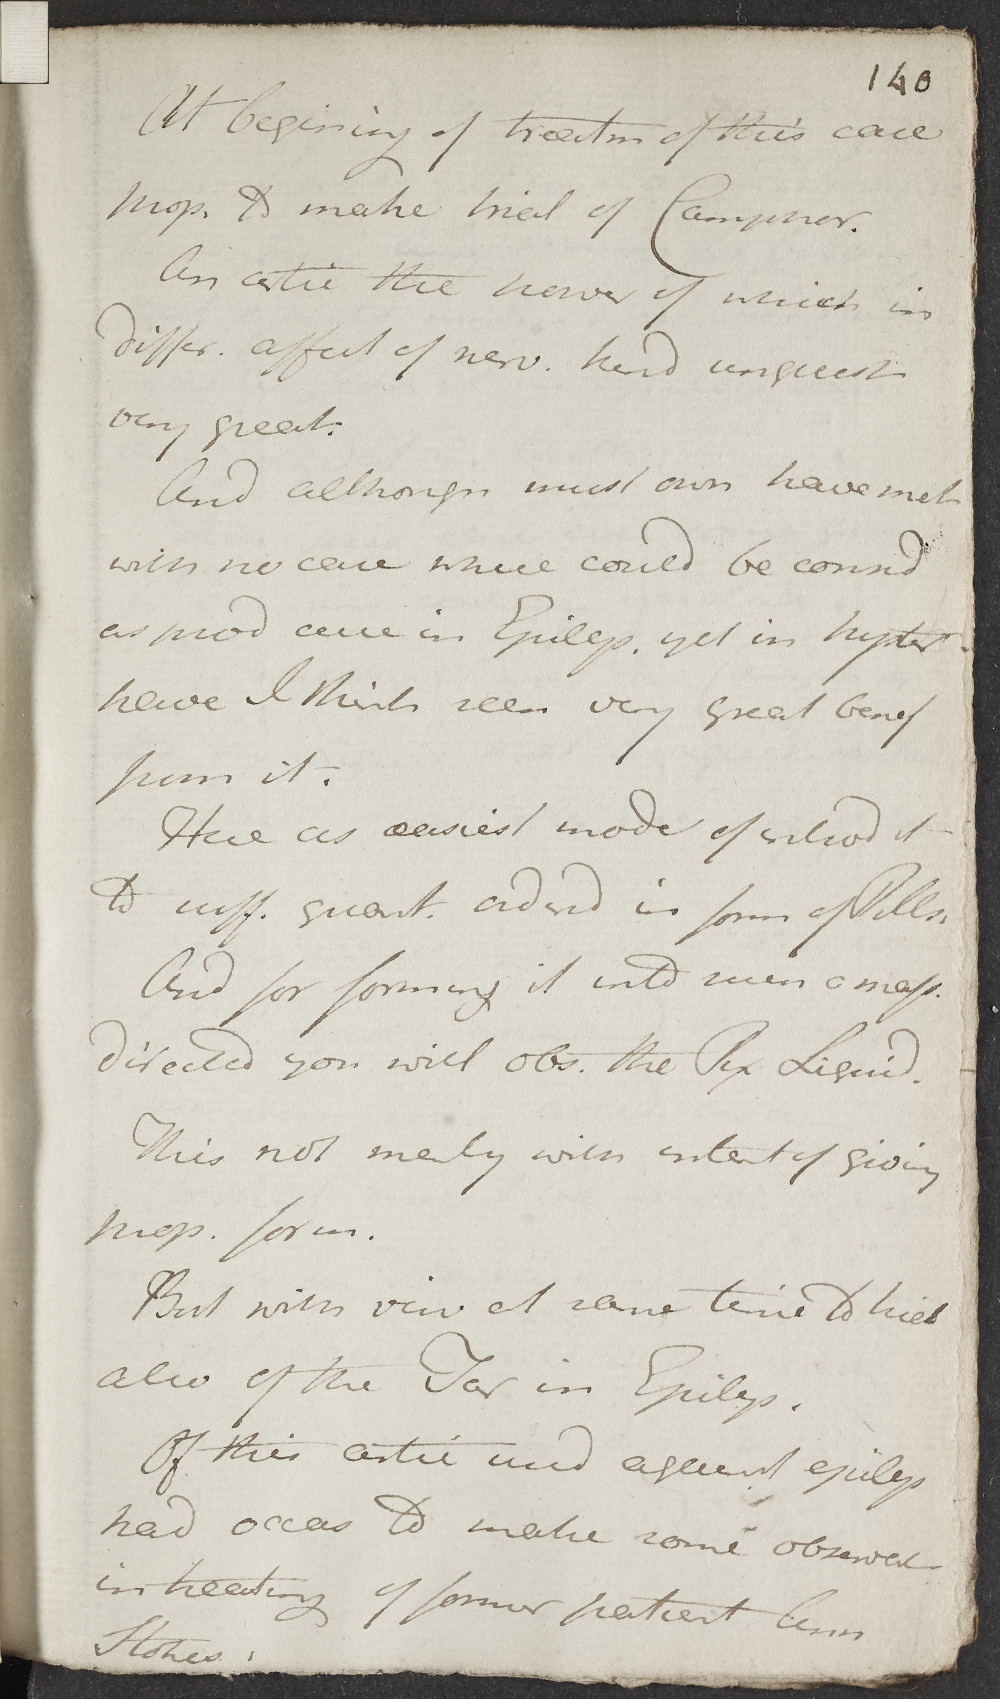 140
At begining of treatm of this case
prop. to make trial of Camphor.
An artic the power of which in
differ. affect of nerv. kind unquest
very great.
And although must own have met
with no case where could be consid
as prod cure in Epilep. yet in hyster.
have I think seen very great benef
from it.
Here as easiest mode of introd it
to suff. quant. ordered in form of Pills.
And for forming it into such a mass.
directed you will obs. the Pix Liquid.
This not merely with intent of giving
prop. form.
But with view at same time to trial
also of the Tar in Epilep.
Of this artic used against epilep
had occas to make some observat
in treating of former patient Ann
Stokes.